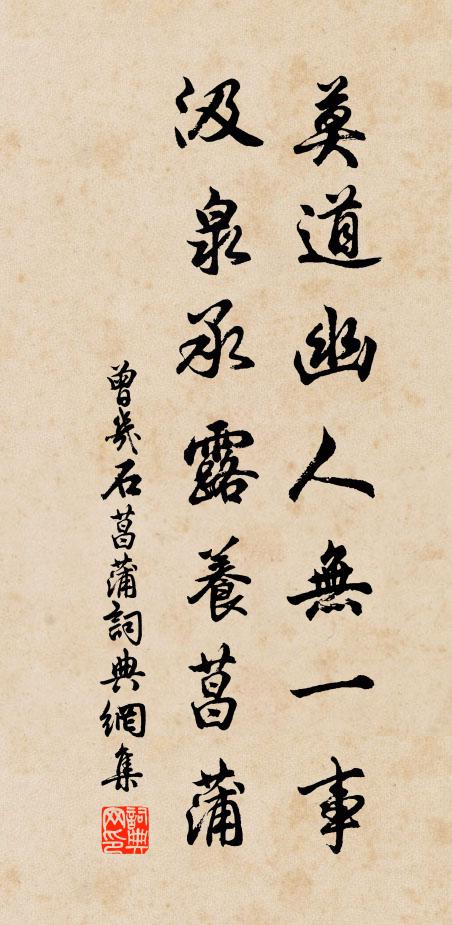 莫道幽人無一事
汲泉承露養菖蒲
曾幾石菖蒲詞典網集
詞典网印